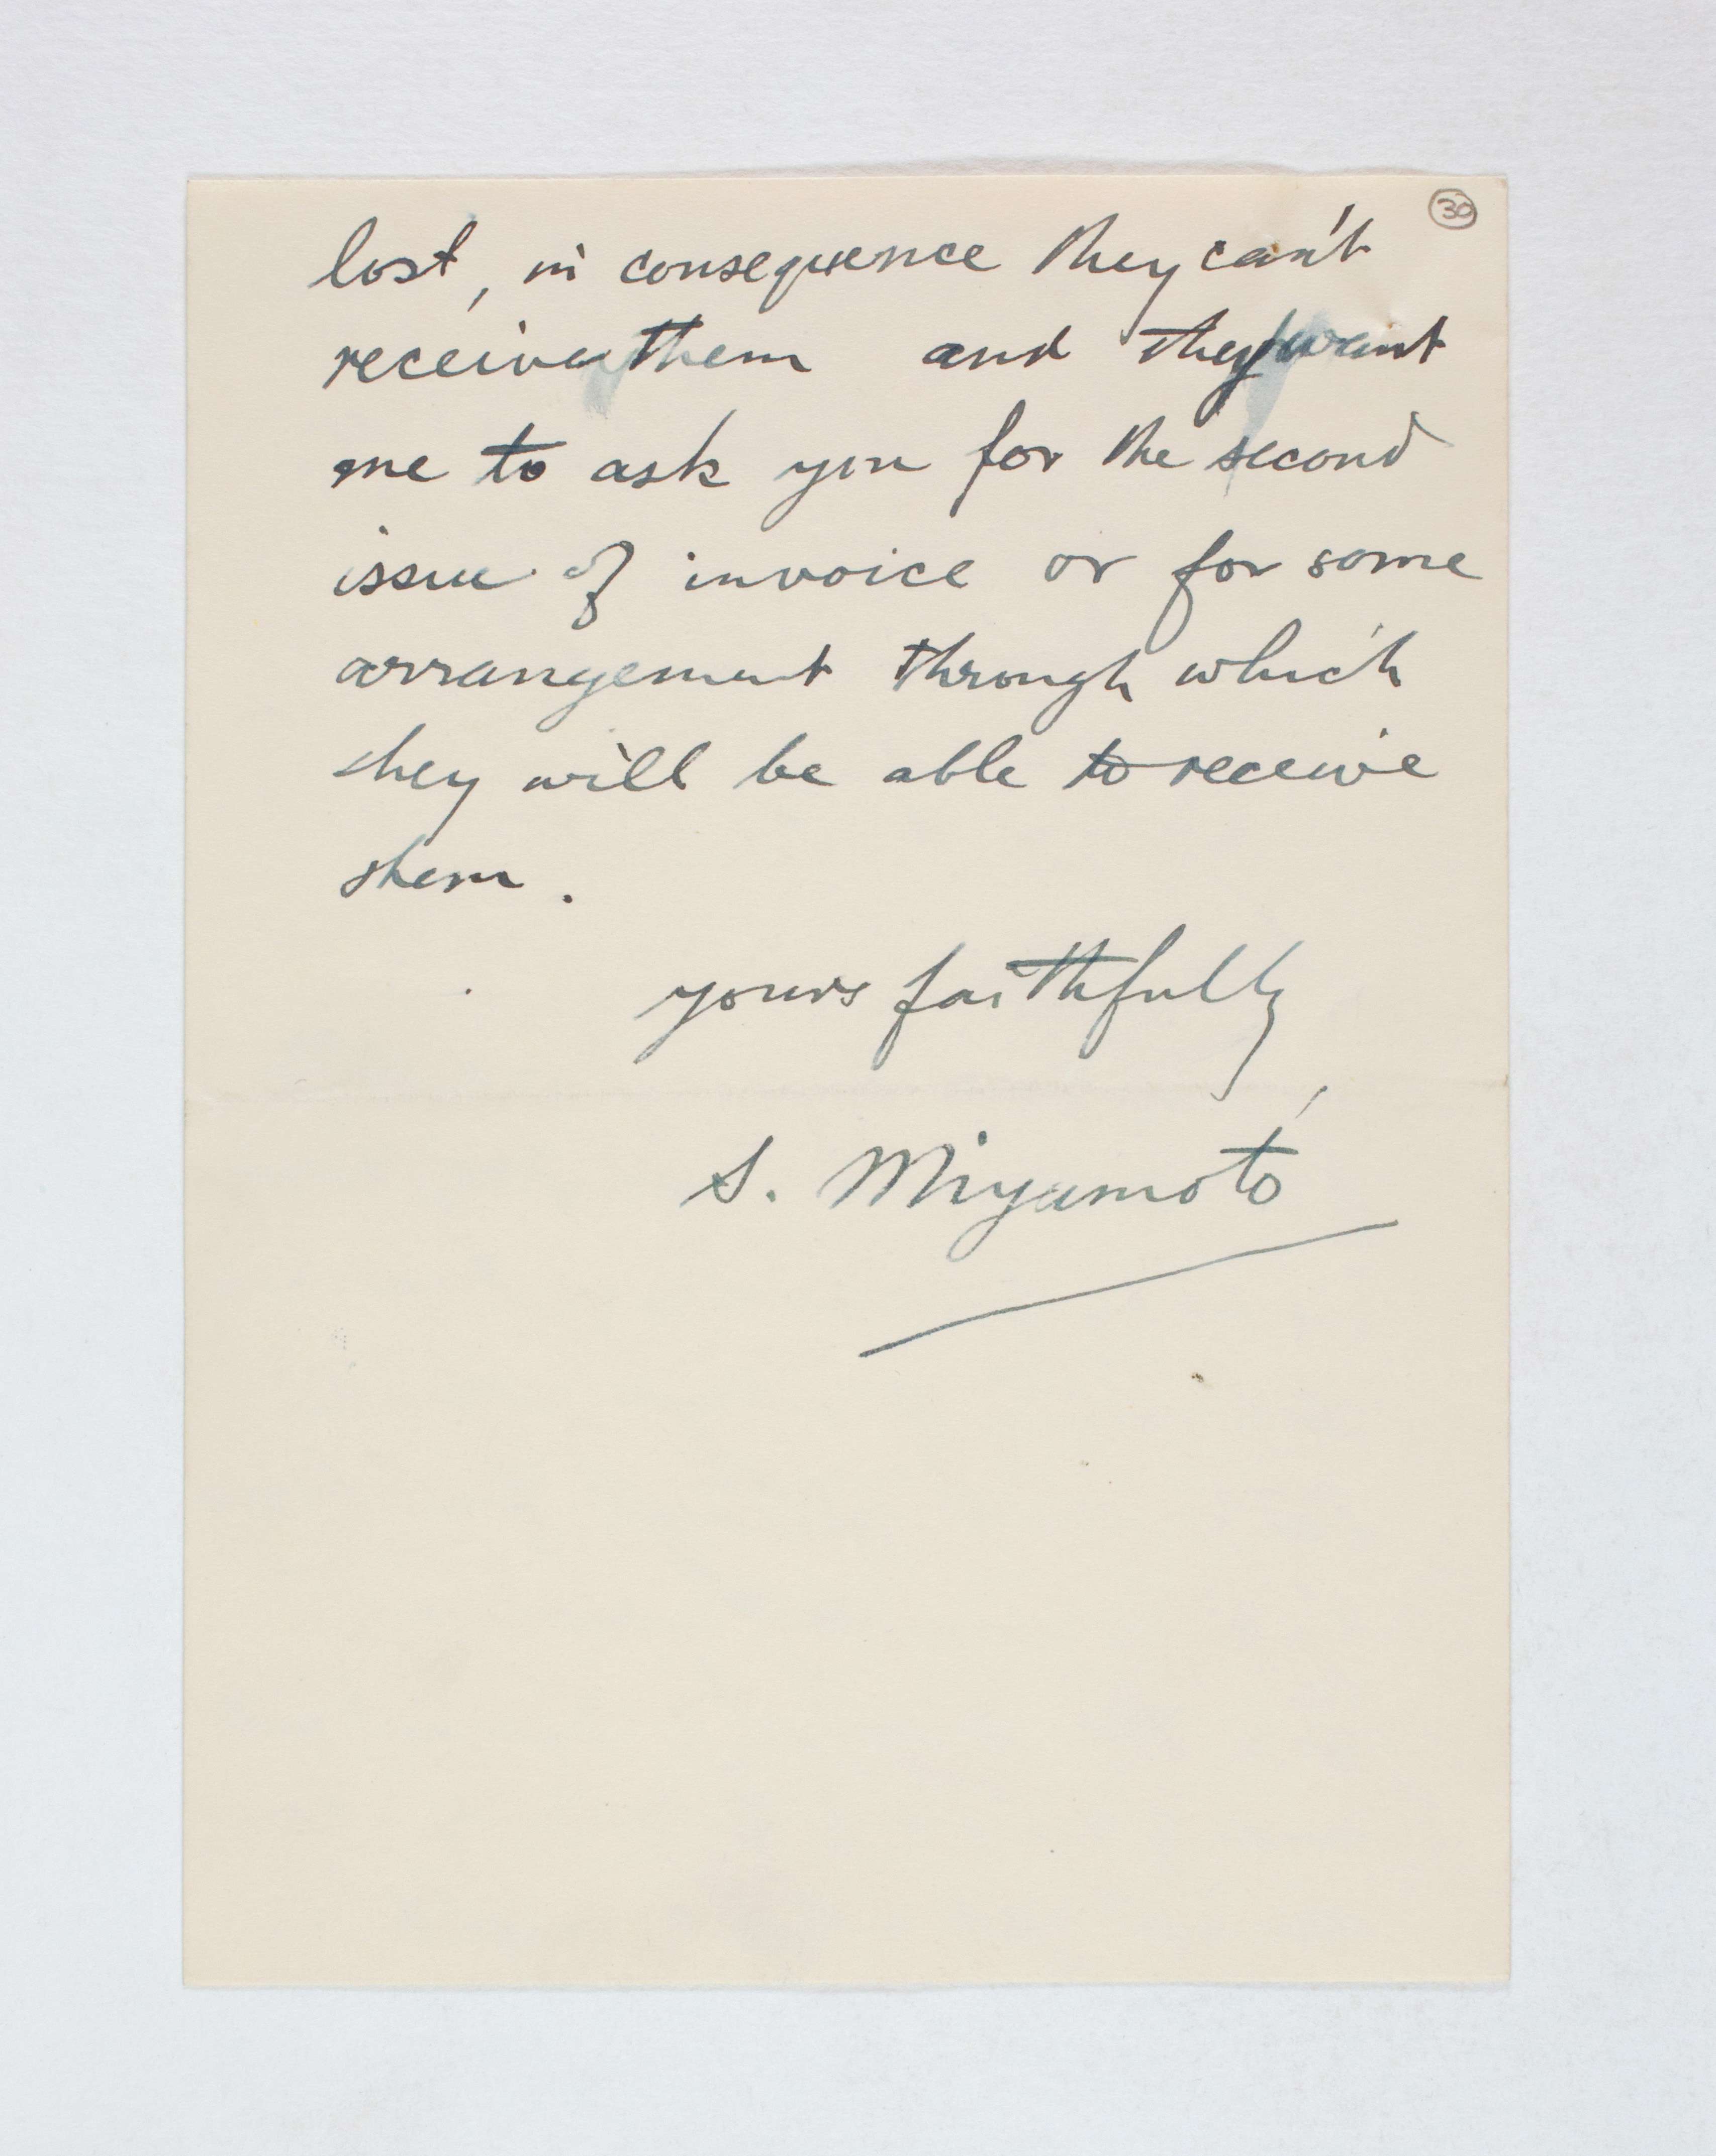 30
lost, in consequence they can't
receive them and they want
me to ask you for the second
issue of invoice or for some
arrangement through which
they will be able to receive
them.
yours faithfully,
S. Miyamoto